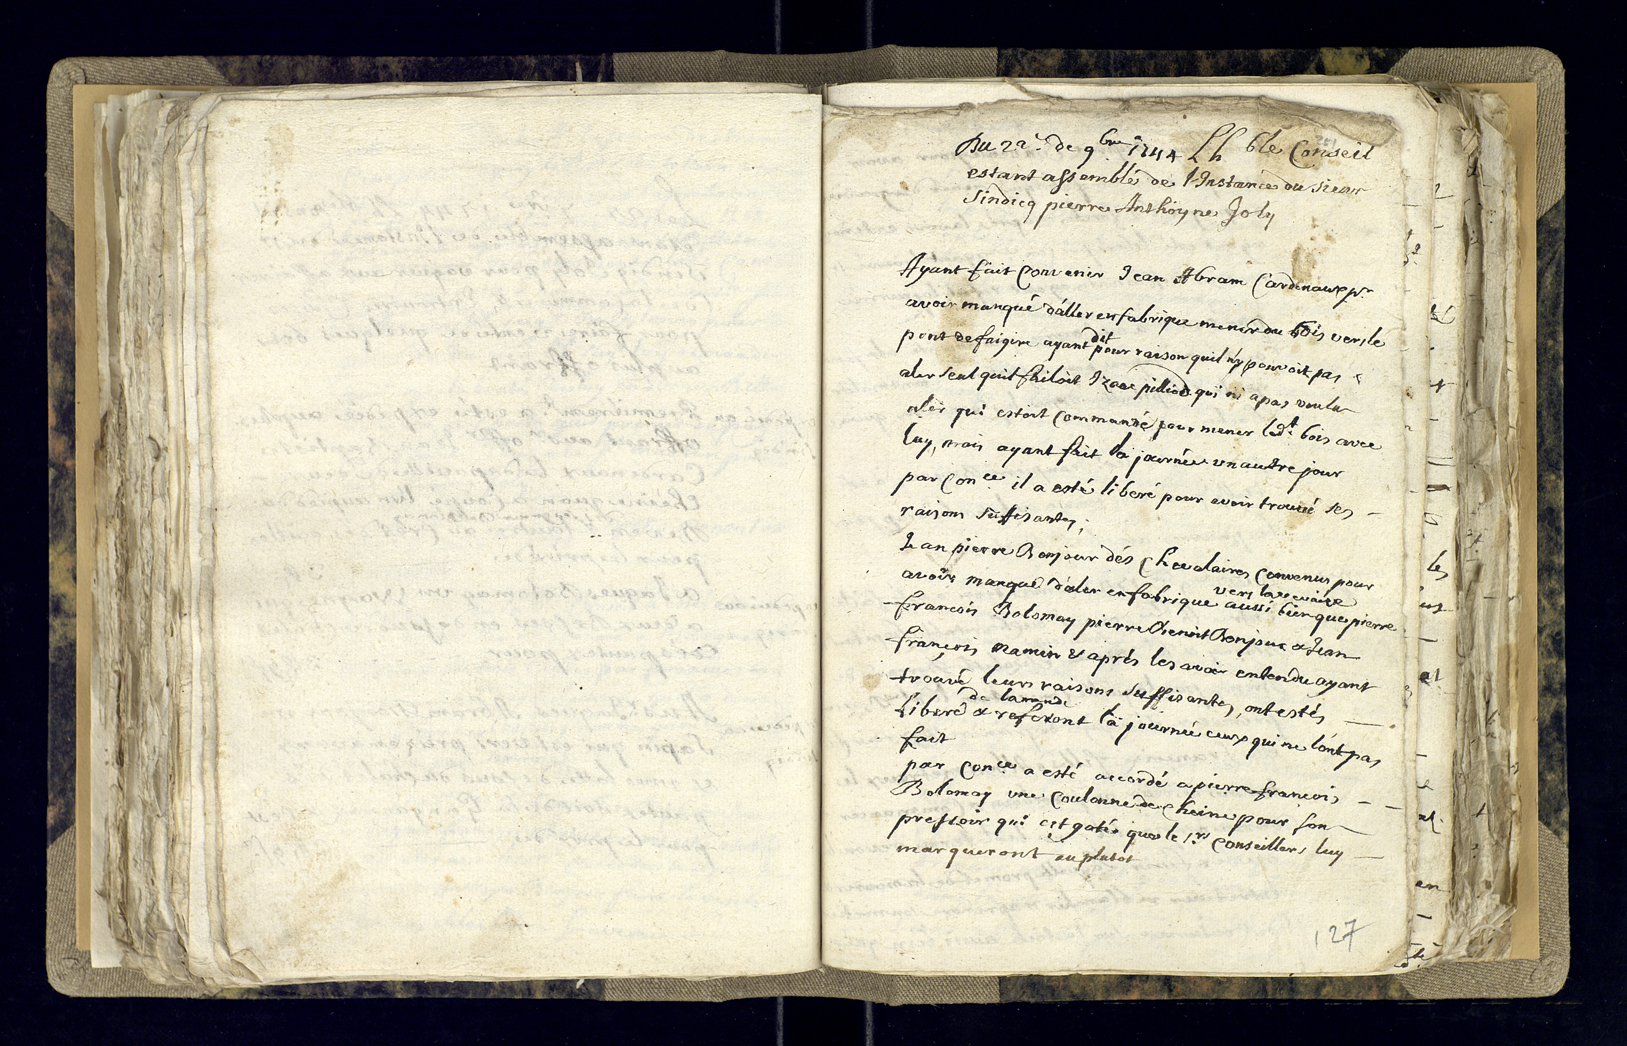 Du 22e. de 9bre 1744 Lh ble Conseil
estant assemblé de l'Instance du sieur
Sindicq pierre Anthoyne Joly
Ayant fait Convenir Jean Abram Cardinaux pr.
avoir manqué d'aller en fabrique mener du bois vers le
pont de faigire ayant dit pour raison quil n'y pouvoit pas
aler seul quil failoit Izaac pilliod qui ni a pas voulu
aler qui estoit commandé pour mener led.t bois avec
luy, mais ayant fait la journée un autre jour
par Con.ce il a esté liberé pour avoir trouvé ses
raisons suffisantes;
Jean pierre Bonjour dés Chevalaires Convenus pour
avoir manqué d'aler en fabrique vers la aussi bien que pierre
francois Bolomay pierre Benoit Bonjour & Jean
françois mamin & aprés les avoir entendu ayant
trouvé leurs raisons suffisantes, ont estés
Liberé de lamande & referont la journée ceux qui ne l'ont pas
fait
par con.ce a esté accordé a pierre francois
Bolomay une Coulonne de Cheine pour son
pressoir qui est gatée que le Srs Conseillers luy
marqueront au plutot
127